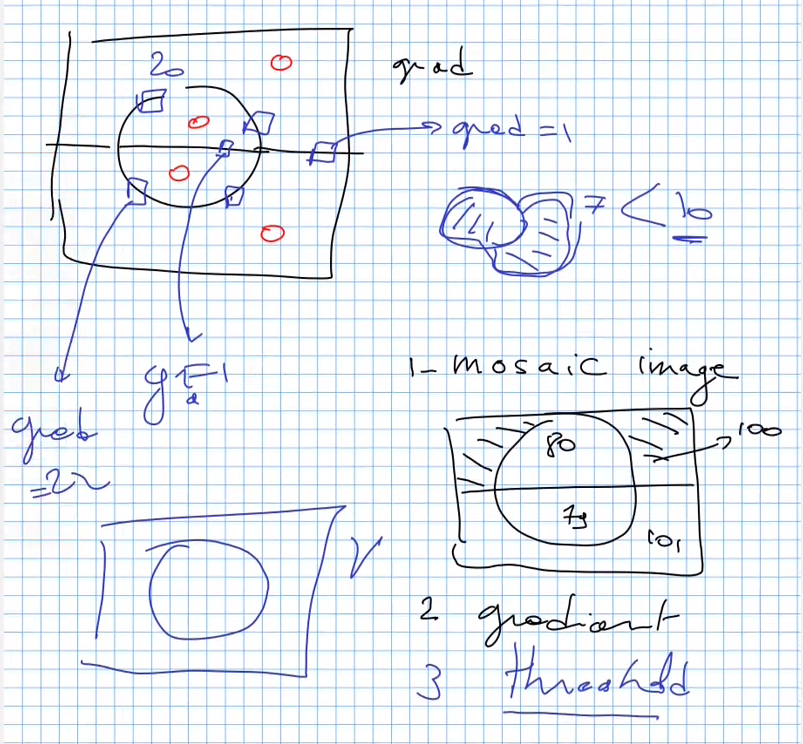 20
grad
grad = 1
7 < 10
1- mosaic image
80
100
79
101
2 gradient
3 threshold